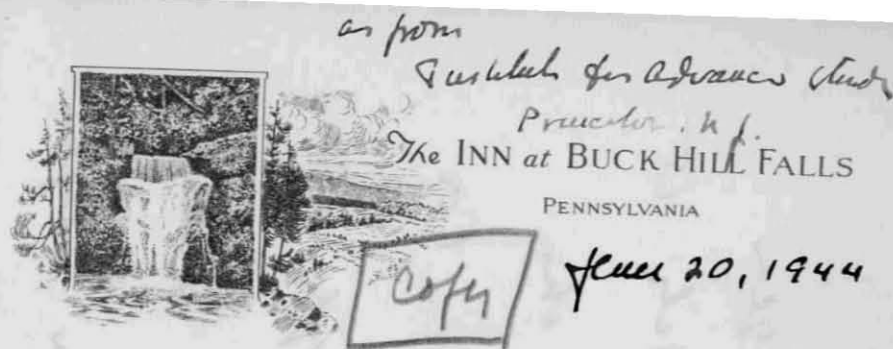 as from
Institute for Advance Study
Princeton, N.J.
The INN at BUCK HILL FALLS
PENNSYLVANIA
copy
June 20, 1944